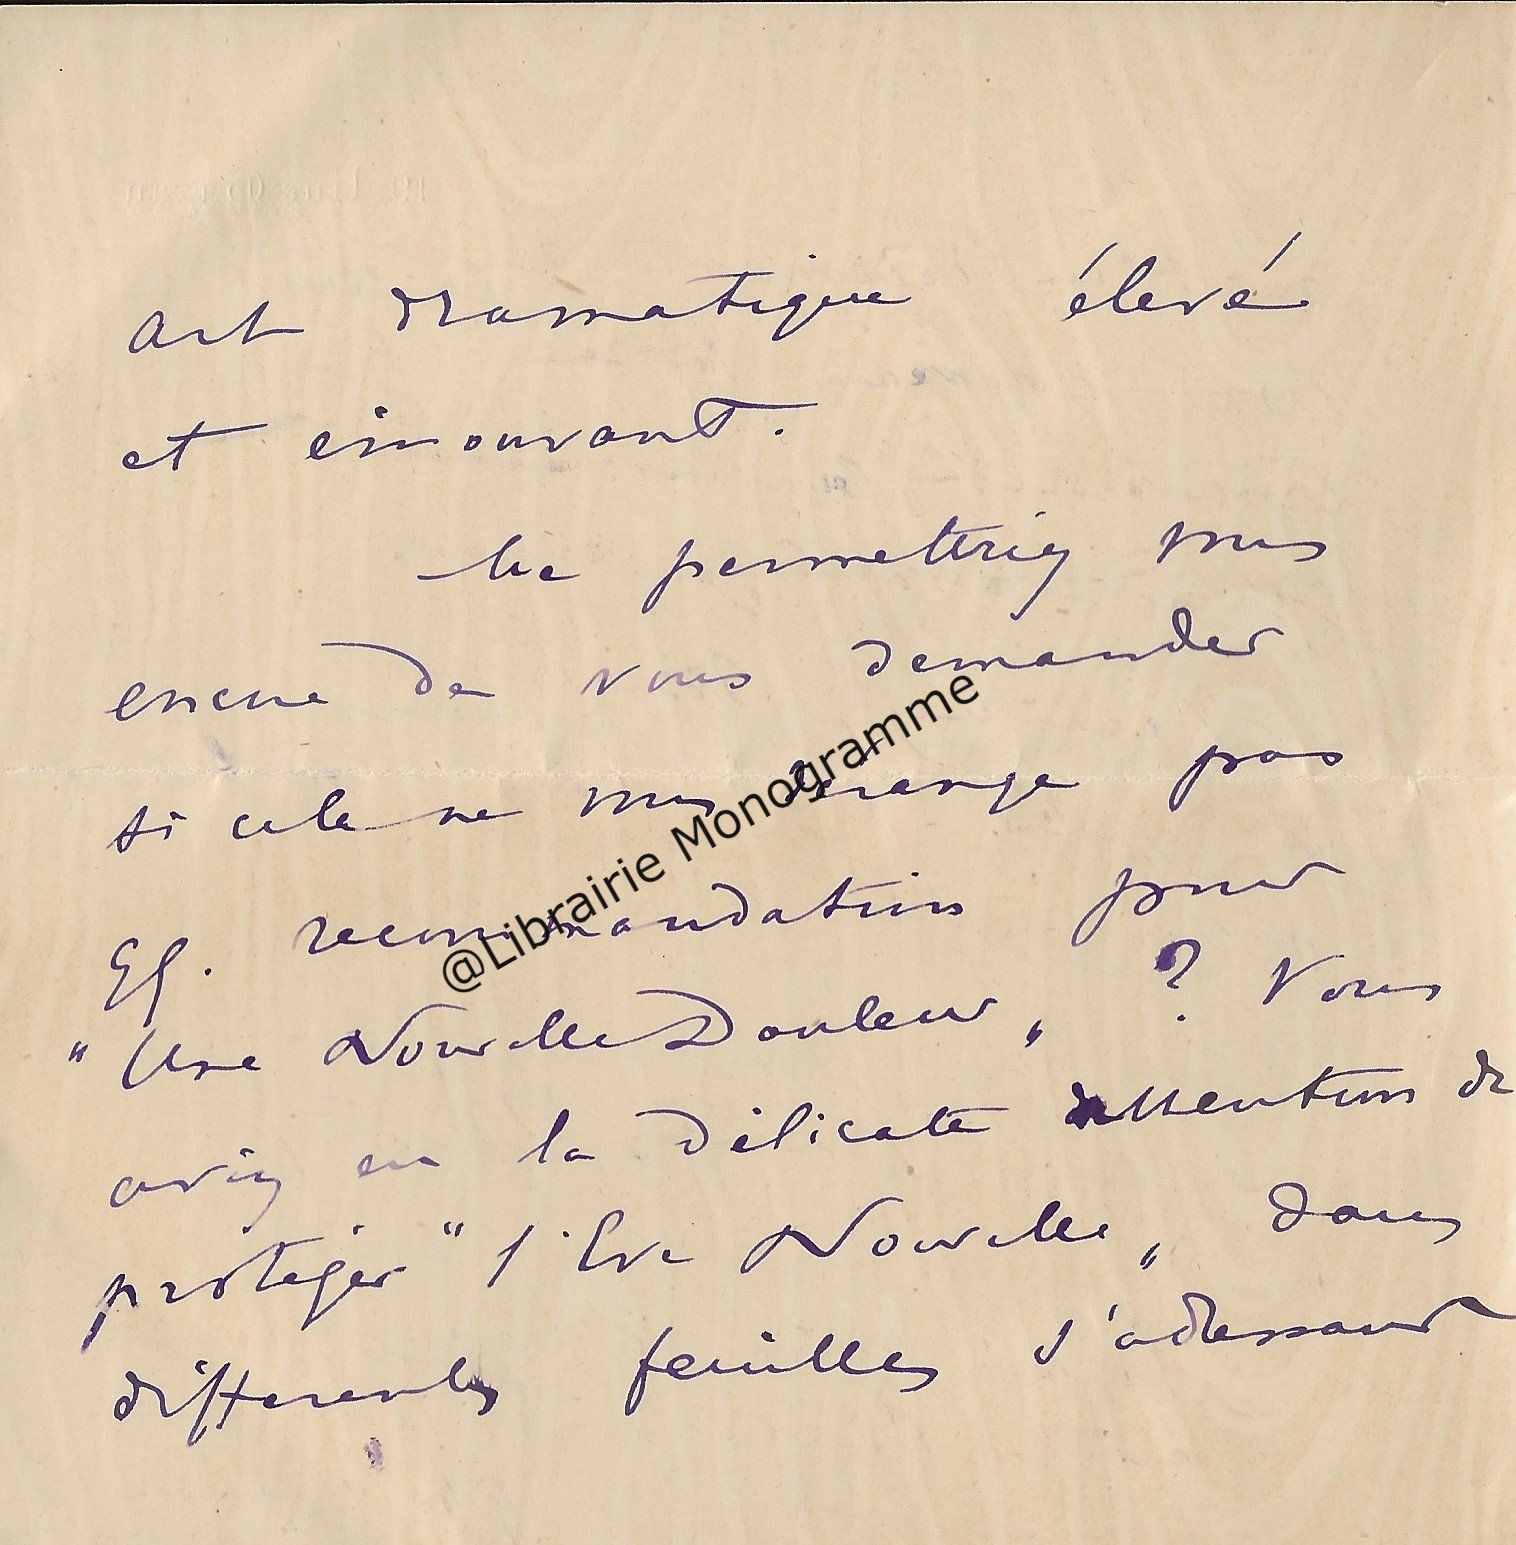 art dramatique élevé
et émouvant.
Me permettriez vous
encore de vous demander
si cela ne vous dérange pas
qq. recommandations pour
"Une Nouvelle Douleur„ ? Vous
aviez eu la délicate attention de
protéger "l'Eve Nouvelle„ dans
différentes feuilles s'adressant
@Librairie Monogramme